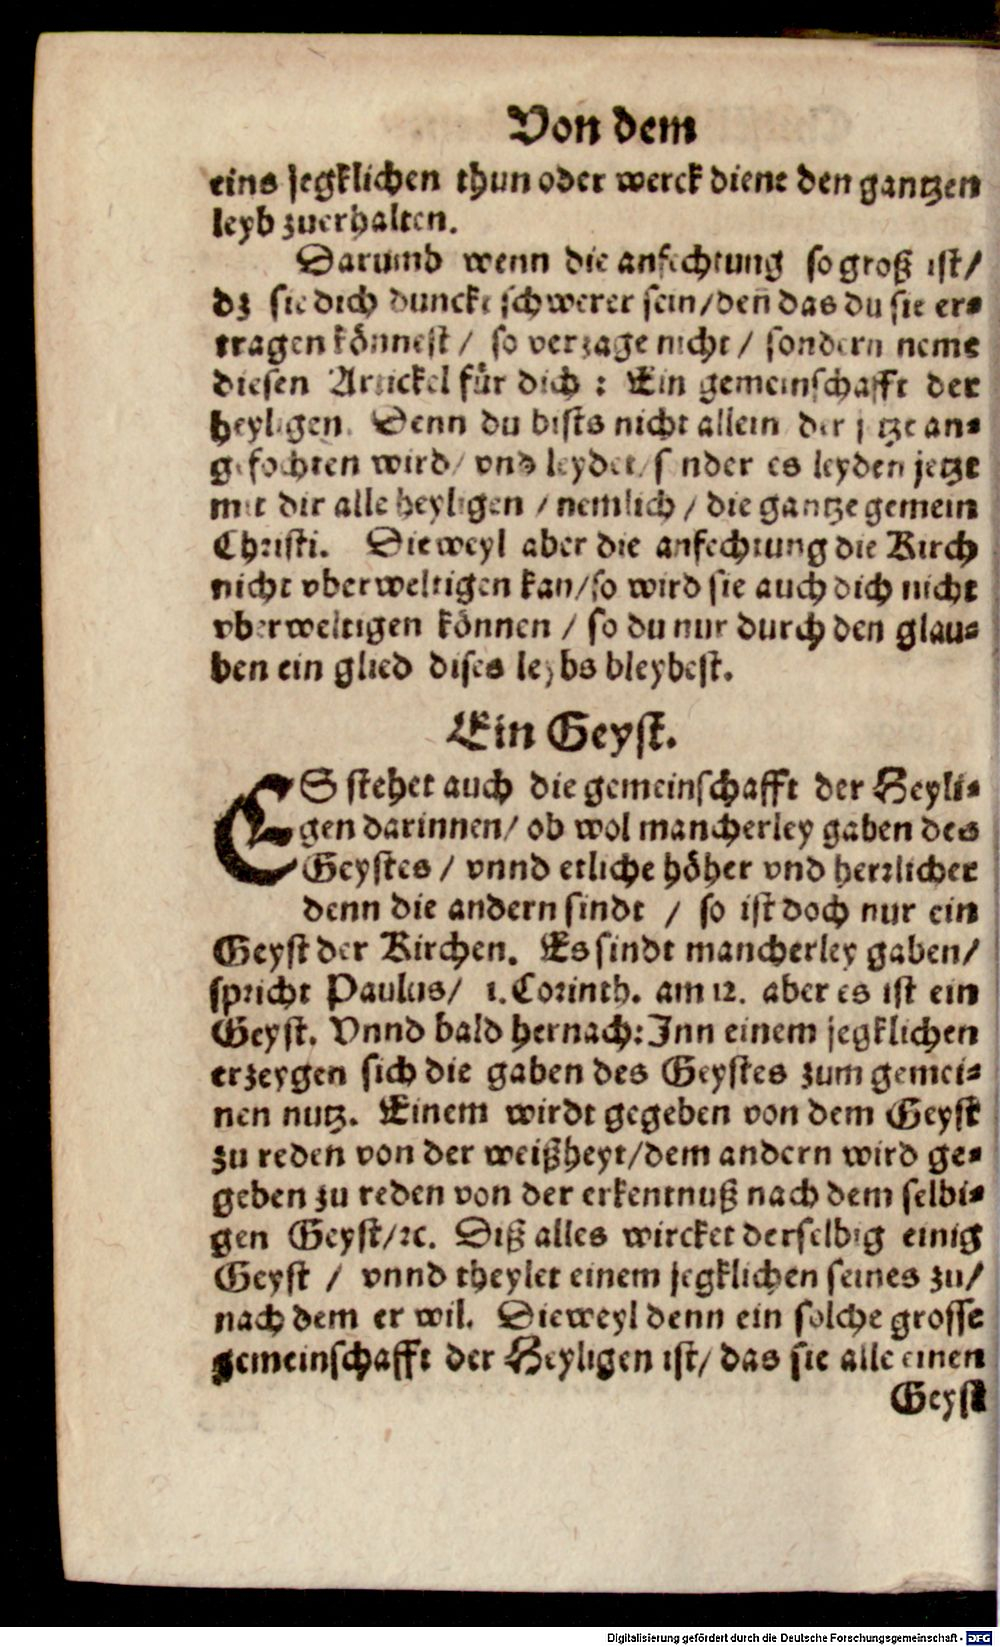 Von dem
eins jegklichen thun oder werck diene den gantzen
leyb zuerhalten.
Darumb wenn die anfechtung so groß ist/
dz sie dich duncke schwerer sein/ deñ das du sie er-
tragen könnest / so verzage nicht / sondern neme
diesen Artickel für dich : Ein gemeinschafft der
heyligen. Denn du bists nicht allein der jetzt an-
gefochten wird/ vnd leydet/ sonder es leyden jetzt
mit dir alle heyligen / nemlich / die gantze gemein
Christi. Dieweyl aber die anfechtung die Kirch
nicht vberweltigen kan/ so wird sie auch dich nicht
vberweltigen können / so du nur durch den glau-
ben ein glied dises leybs bleybest.
Ein Geyst.
ES stehet auch die gemeinschafft der Heyli-
gen darinnen/ ob wol mancherley gaben des
Geystes / vnnd etliche höher vnd herrlicher
denn die andern sindt / so ist doch nur ein
Geyst der Kirchen. Es sindt mancherley gaben/
spricht Paulus/ 1. Corinth. am 12. aber es ist ein
Geyst. Vnnd bald hernach: Inn einem jegklichen
erzeygen sich die gaben des Geystes zum gemei-
nen nutz. Einem wirdt gegeben von dem Geyst
zu reden von der weißheyt/ dem andern wird ge-
geben zu reden von der erkentnuß nach dem selbi-
gen Geyst/ ꝛc. Diß alles wircket derselbig einig
Geyst / vnnd theylet einem jegklichen seines zu/
nach dem er wil. Dieweyl denn ein solche grosse
gemeinschafft der Heyligen ist/ das sie alle einen
Geyst
Digitalisierung gefördert durch die Deutsche Forschungsgemeinschaft - DFG